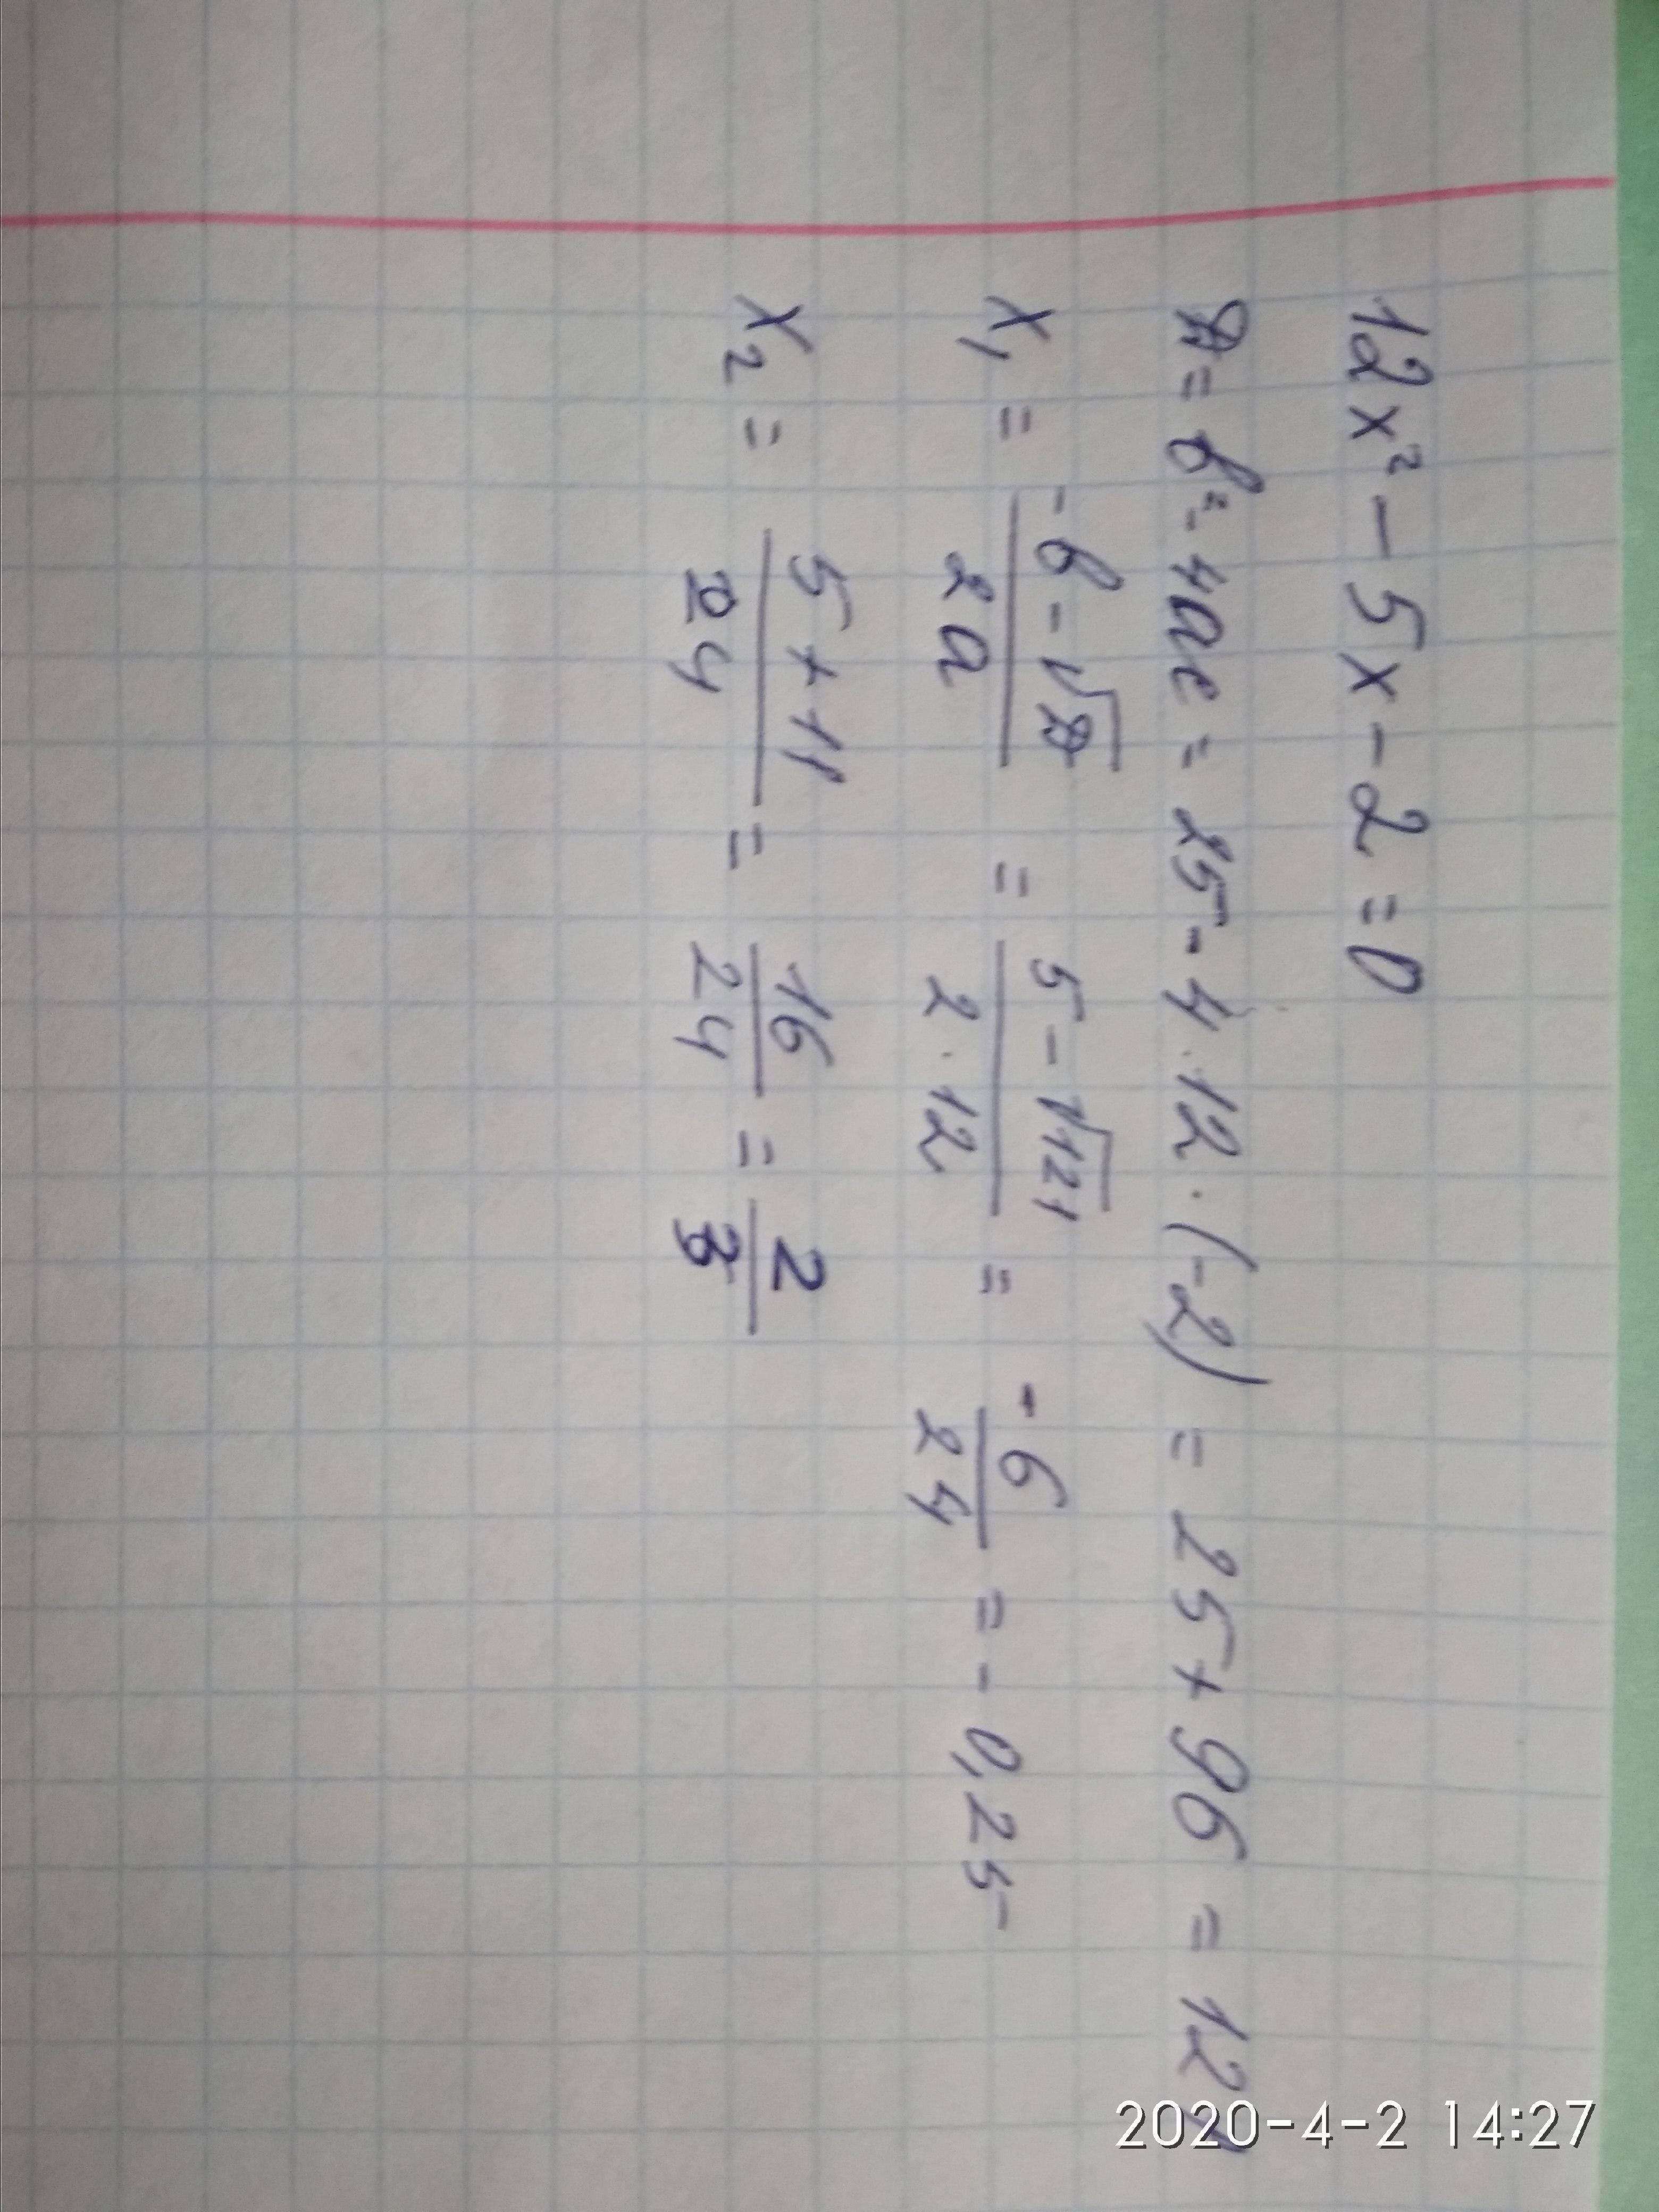 12x² - 5x - 2 = 0
D = b² - 4ac = 25 - 4 · 12 · (-2) = 25 + 96 = 121
x₁ = (-b - √D)/(2a) = (5 - √121)/(2 · 12) = (-6)/24 = -0,25
x₂ = (5 + 11)/24 = 16/24 = 2/3
2020-4-2 14:27